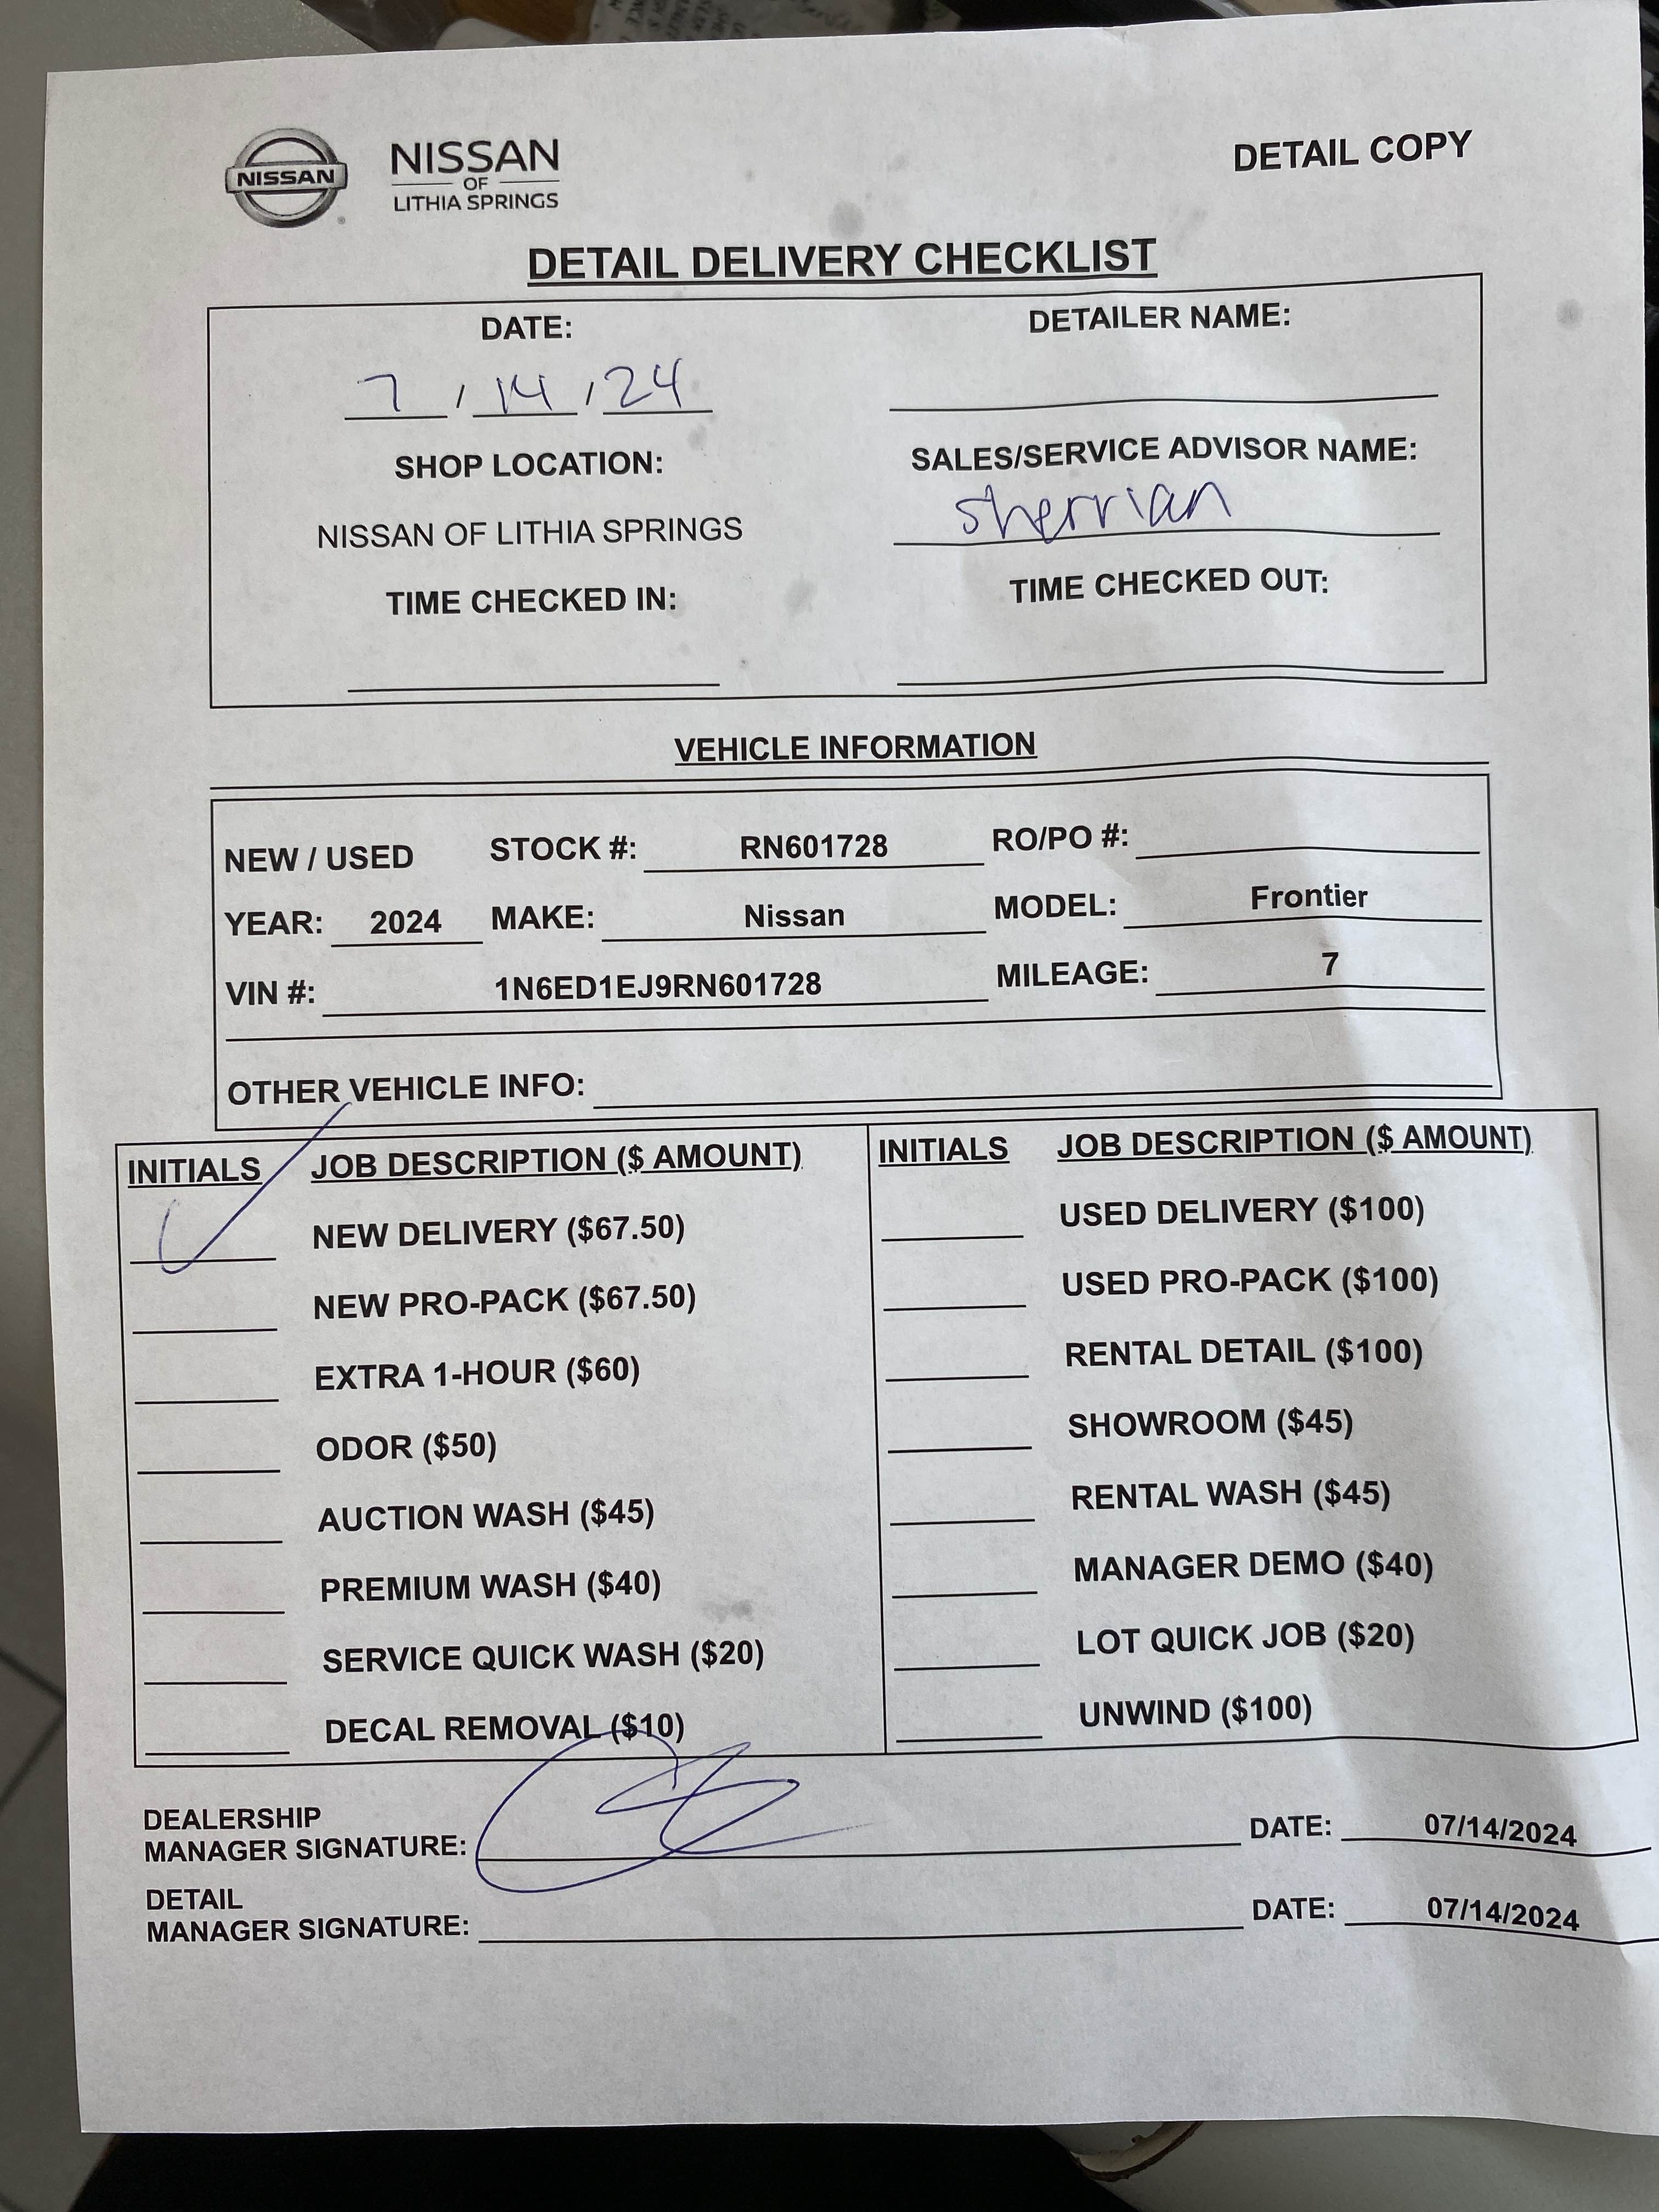 NISSAN
NISSAN
OF
LITHIA SPRINGS
DETAIL COPY
DETAIL DELIVERY CHECKLIST
DATE: DETAILER NAME:
7 / 14 / 24
SHOP LOCATION: SALES/SERVICE ADVISOR NAME:
NISSAN OF LITHIA SPRINGS sherrian
TIME CHECKED IN: TIME CHECKED OUT:
VEHICLE INFORMATION
NEW / USED STOCK #: RN601728 RO/PO #:
YEAR: 2024 MAKE: Nissan MODEL: Frontier
VIN #: 1N6ED1EJ9RN601728 MILEAGE: 7
OTHER VEHICLE INFO:
INITIALS JOB DESCRIPTION ($ AMOUNT) INITIALS JOB DESCRIPTION ($ AMOUNT)
NEW DELIVERY ($67.50) USED DELIVERY ($100)
NEW PRO-PACK ($67.50) USED PRO-PACK ($100)
EXTRA 1-HOUR ($60) RENTAL DETAIL ($100)
ODOR ($50) SHOWROOM ($45)
AUCTION WASH ($45) RENTAL WASH ($45)
PREMIUM WASH ($40) MANAGER DEMO ($40)
SERVICE QUICK WASH ($20) LOT QUICK JOB ($20)
DECAL REMOVAL ($10) UNWIND ($100)
DEALERSHIP
MANAGER SIGNATURE: DATE: 07/14/2024
DETAIL
MANAGER SIGNATURE: DATE: 07/14/2024